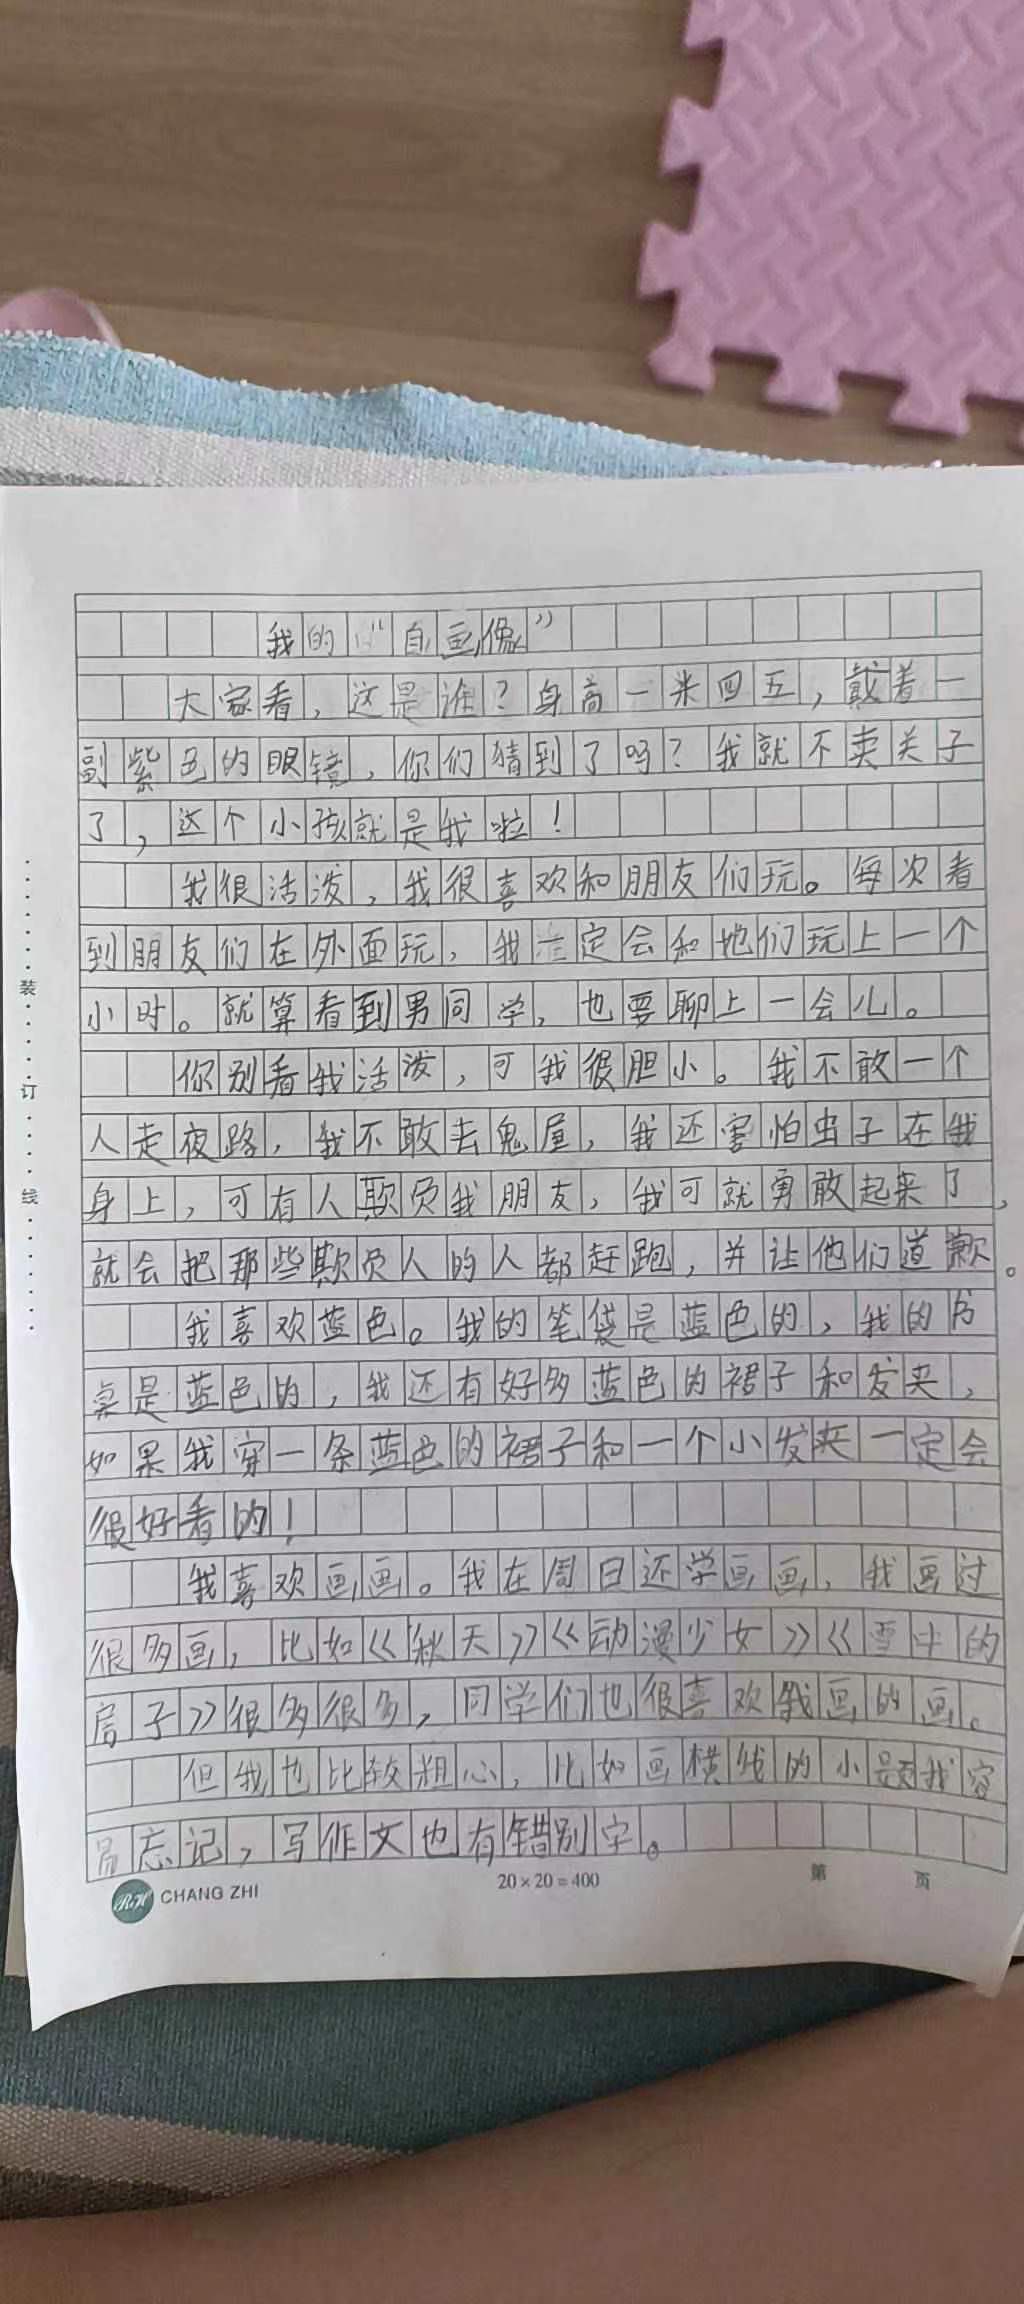 我的“自画像”
大家看，这是谁？身高一米四五，戴着一
副紫色的眼镜，你们猜到了吗？我就不卖关子
了，这个小孩就是我啦！
我很活泼，我很喜欢和朋友们玩。每次看
到朋友们在外面玩，我一定会和她们玩上一个
小时。就算看到男同学，也要聊上一会儿。
你别看我活泼，可我很胆小。我不敢一个
人走夜路，我不敢去鬼屋，我还害怕虫子在我
身上，可有人欺负我朋友，我可就勇敢起来了，
就会把那些欺负人的人都赶跑，并让他们道歉。
我喜欢蓝色。我的笔袋是蓝色的，我的书
桌是蓝色的，我还有好多蓝色的裙子和发夹，
如果我穿一条蓝色的裙子和一个小发夹一定会
很好看的！
我喜欢画画。我在周日还学画画，我画过
很多画，比如《秋天》《动漫少女》《雪中的
房子》很多很多，同学们也很喜欢我画的画。
但我也比较粗心，比如画横线的小题我容
易忘记，写作文也有错别字。
装 订 线
CHANG ZHI
20×20=400
第 页